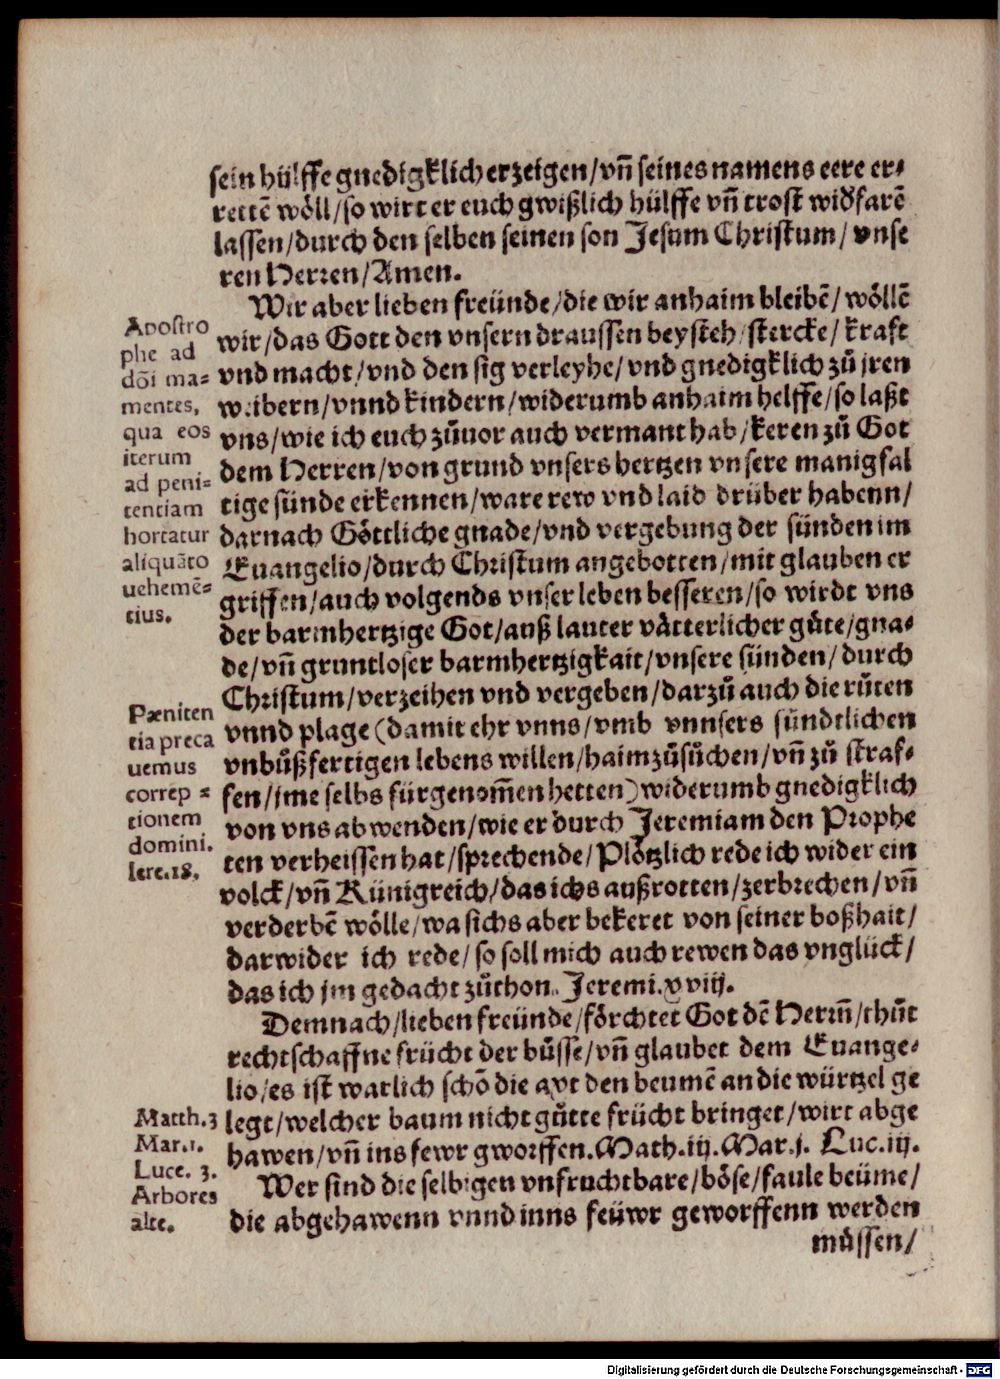 sein hülffe gnedigklich erzeigen/vñ seines namens eere er⸗
rettē wöll/so wirt er euch gwißlich hülffe vñ trost widfarē
lassen/durch den selben seinen son Jesum Christum/vnse
ren Herren/Amen.
Wir aber lieben freünde/die wir anhaim bleibē/wöllē
wir/das Gott den vnsern draussen beysteh/stercke/kraft
vnd macht/vnd den sig verleyhe/vnd gnedigklich zů jren
weibern/vnnd kindern/widerumb anhaim helffe/so laßt
vns/wie ich euch zůuor auch vermant hab/keren zů Got
dem Herren/von grund vnsers hertzen vnsere manigfal
tige sünde erkennen/ware rew vnd laid drüber habenn/
darnach Göttliche gnade/vnd vergebung der sünden im
Euangelio/durch Christum angebotten/mit glauben er
griffen/auch volgends vnser leben besseren/so wirdt vns
der barmhertzige Got/auß lauter vätterlicher güte/gna⸗
de/vñ gruntloser barmhertzigkait/vnsere sünden/durch
Christum/verzeihen vnd vergeben/darzů auch die růten
vnnd plage (damit ehr vnns/vmb vnnsers sündtlichen
vnbůßfertigen lebens willen/haimzůsůchen/vñ zů straf⸗
fen/jme selbs fürgenom̄en hetten) widerumb gnedigklich
von vns abwenden/wie er durch Jeremiam den Prophe
ten verheissen hat/sprechende/Plötzlich rede ich wider ein
volck/vñ Künigreich/das ichs außrotten/zerbrechen/vñ
verderbē wölle/wa sichs aber bekeret von seiner boßhait/
darwider ich rede/so soll mich auch rewen das vnglück/
das ich jm gedacht zůthon. Jeremi.xviij.
Demnach/lieben freünde/förchtet Got dē Herrñ/thůt
rechtschaffne frücht der bůsse/vñ glaubet dem Euange⸗
lio/es ist warlich schō die axt den beumē an die würtzel ge
legt/welcher baum nicht gůtte frücht bringet/wirt abge
hawen/vñ ins fewr gworffen. Math.iij. Mar.j. Luc.iij.
Wer sind die selbigen vnfruchtbare/böse/faule beüme/
die abgehawenn vnnd inns feüwr geworffenn werden
müssen/
Apostro
phe ad
dōi ma⸗
mentes,
qua eos
iterum
ad peni⸗
tentiam
hortatur
aliquāto
uehemē⸗
tius.
Pæniten
tia preca
uemus
correp⸗
tionem
domini.
Iere.18.
Matth.3
Mar.1.
Luce. 3.
Arbores
alte.
Digitalisierung gefördert durch die Deutsche Forschungsgemeinschaft - DFG